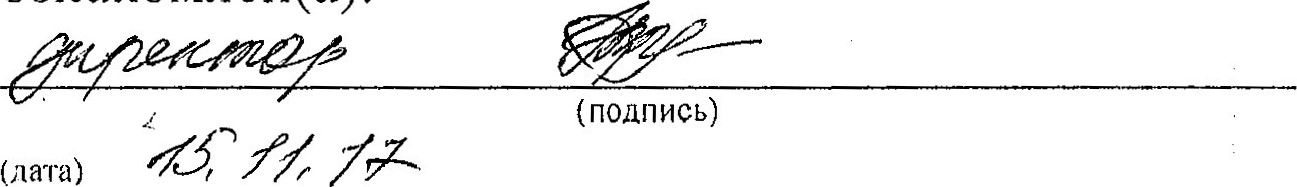 директор
(подпись)
(дата) 15.11.17